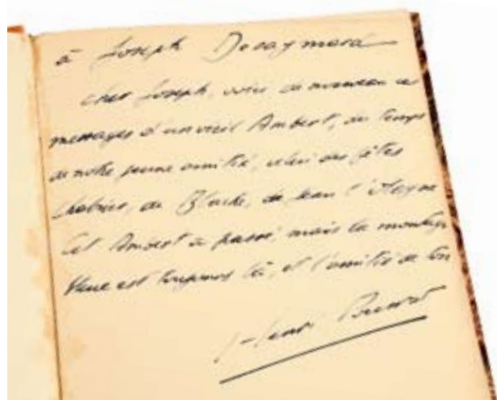 à Joseph Desaymard
cher Joseph, voici de nouveau ces
messages d'un vieil Ambert, du temps
de notre jeune amitié, celui des fêtes
Chabrier, de de Jean l'Olagne
Cet Ambert a passé, mais la montagne
bleue est toujours là, et l'amitié de ton
Henri Pourrat